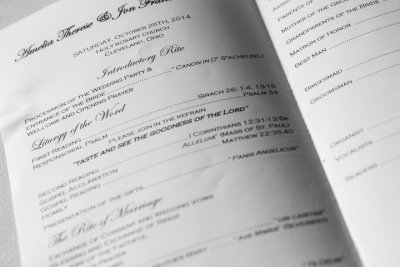 Amelia Therese & Jon
Saturday, October 25th, 2014
Holy Rosary Church
Cleveland, Ohio
Introductory Rite
Procession of the Wedding Party &
Entrance of the Bride "Canon in D" (Pachelbel)
Welcome and Opening Prayer
Liturgy of the Word
First Reading Sirach 26:1-4, 13-16
Responsorial Psalm Please join in the refrain Psalm 34
"Taste and see the goodness of the Lord"
Second Reading I Corinthians 12:31-13:8a
Gospel Acclamation Alleluia" (Mass of St. Paul)
Gospel Reading Matthew 22:35-40
Homily
Presentation of the Gifts "Panis Angelicus"
The Rite of Marriage
Exchange of Consent and Wedding Vows
Blessing and Exchange of Rings
Prayers of the Faithful
Parents of the
Mother of the Bride
Grandparents of the
Matron of Honor
Best Man
Bridesmaid
Groomsman
Organist
Vocalists
Readers